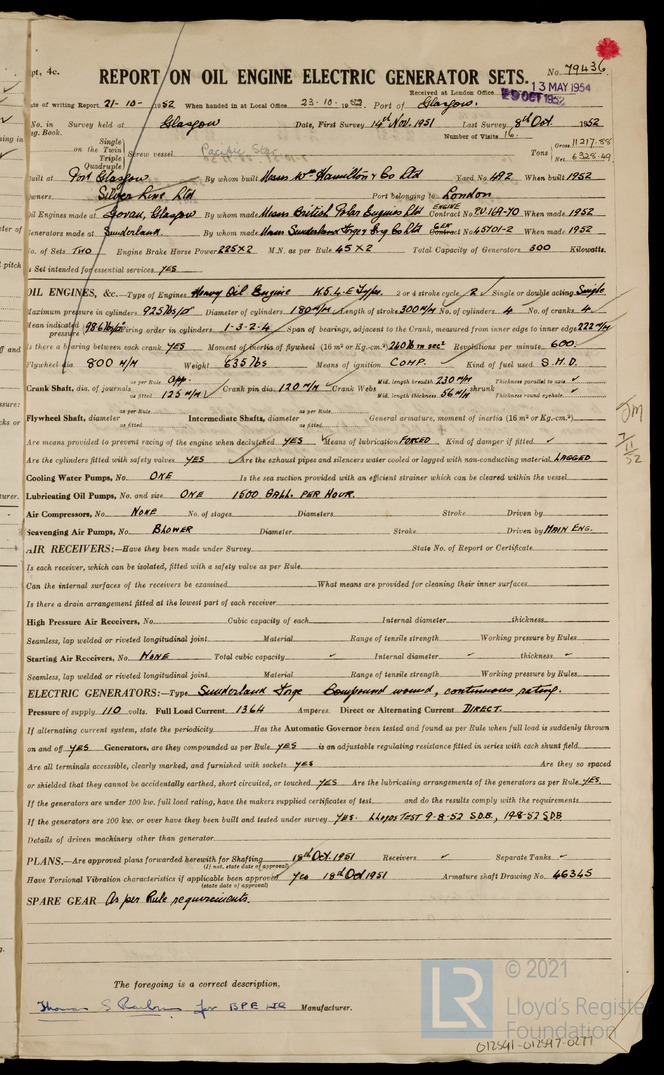 pt. 4c. REPORT ON OIL ENGINE ELECTRIC GENERATOR SETS. No. 79436
Received at London Office 13 MAY 1954
29 OCT 1952
ate of writing Report 21-10-1952 When handed in at Local Office 23-10-1952 Port of Glasgow.
No. in Survey held at Glasgow Date, First Survey 14th Nov. 1951 Last Survey 8th Oct. 1952
eg. Book. Number of Visits 16
Single
on the Twin
Triple
Quadruple
Screw vessel Pacific Star Tons Gross 11217.88
Net 6328.49
uilt at Port Glasgow By whom built Messrs Wm Hamilton & Co Ltd Yard No. 492 When built 1952
wners Silver Line Ltd Port belonging to London
Oil Engines made at Govan, Glasgow By whom made Messrs British Polar Engines Ltd ENGINE Contract No. When made 1952
enerators made at Sunderland By whom made Messrs Sunderland Forge & Eng Co Ltd GEN Contract No. 65701-2 When made 1952
o. of Sets TWO Engine Brake Horse Power 225X2 M.N. as per Rule 45X2 Total Capacity of Generators 300 Kilowatts.
s Set intended for essential services YES
OIL ENGINES, &c.—Type of Engines Heavy Oil Engine 2 or 4 stroke cycle 2 Single or double acting Single
Maximum pressure in cylinders 925 lbs/□" Diameter of cylinders 180 M/M Length of stroke 300 M/M No. of cylinders 4 No. of cranks 4
Mean indicated pressure 98.6 lbs/□" Firing order in cylinders 1-3-2-4 Span of bearings, adjacent to the Crank, measured from inner edge to inner edge 222 M/M
Is there a bearing between each crank YES Moment of inertia of flywheel (16 m² or Kg.-cm.²) Revolutions per minute 600
Flywheel dia 800 M/M Weight 635 lbs Means of ignition COMP. Kind of fuel used
Crank Shaft, dia. of journals as per Rule App. as fitted 125 M/M Crank pin dia. 120 M/M Crank Webs Mid. length breadth 230 M/M Mid. length thickness 56 M/M shrunk Thickness parallel to axis ✓ Thickness round eyehole ✓
Flywheel Shaft, diameter as per Rule as fitted Intermediate Shafts, diameter as per Rule as fitted General armature, moment of inertia (16 m² or Kg.-cm.²)
Are means provided to prevent racing of the engine when declutched YES Means of lubrication FORCED Kind of damper if fitted ✓
Are the cylinders fitted with safety valves YES Are the exhaust pipes and silencers water cooled or lagged with non-conducting material LAGGED
Cooling Water Pumps, No. ONE Is the sea suction provided with an efficient strainer which can be cleared within the vessel
Lubricating Oil Pumps, No. and size ONE 1500 GALL. PER HOUR.
Air Compressors, No. NONE No. of stages Diameters Stroke Driven by
Scavenging Air Pumps, No. BLOWER Diameter Stroke Driven by MAIN ENG.
AIR RECEIVERS:—Have they been made under Survey State No. of Report or Certificate
Is each receiver, which can be isolated, fitted with a safety valve as per Rule
Can the internal surfaces of the receivers be examined What means are provided for cleaning their inner surfaces
Is there a drain arrangement fitted at the lowest part of each receiver
High Pressure Air Receivers, No. Cubic capacity of each Internal diameter thickness
Seamless, lap welded or riveted longitudinal joint Material Range of tensile strength Working pressure by Rules
Starting Air Receivers, No. NONE Total cubic capacity ✓ Internal diameter ✓ thickness ✓
Seamless, lap welded or riveted longitudinal joint Material Range of tensile strength Working pressure by Rules
ELECTRIC GENERATORS:—Type Sunderland Forge Compound wound, continuous rating.
Pressure of supply 110 volts. Full Load Current 1364 Amperes. Direct or Alternating Current DIRECT.
If alternating current system, state the periodicity Has the Automatic Governor been tested and found as per Rule when full load is suddenly thrown
on and off YES Generators, are they compounded as per Rule YES is an adjustable regulating resistance fitted in series with each shunt field
Are all terminals accessible, clearly marked, and furnished with sockets YES Are they so spaced
or shielded that they cannot be accidentally earthed, short circuited, or touched YES Are the lubricating arrangements of the generators as per Rule YES
If the generators are under 100 kw. full load rating, have the makers supplied certificates of test and do the results comply with the requirements
If the generators are 100 kw. or over have they been built and tested under survey YES. LLOYDS TEST 9-8-52 S.D.B., 19-8-52 SDB
Details of driven machinery other than generator
PLANS.—Are approved plans forwarded herewith for Shafting 18th Oct. 1951 Receivers ✓ Separate Tanks ✓
(If not, state date of approval)
Have Torsional Vibration characteristics if applicable been approved Yes 18th Oct 1951 Armature shaft Drawing No. 46345
(state date of approval)
SPARE GEAR As per Rule requirements.
The foregoing is a correct description,
Thomas S for BPE Ltd Manufacturer.
7
11
52
LR
© 2021
Lloyd's Register
Foundation
012541-012547-0277